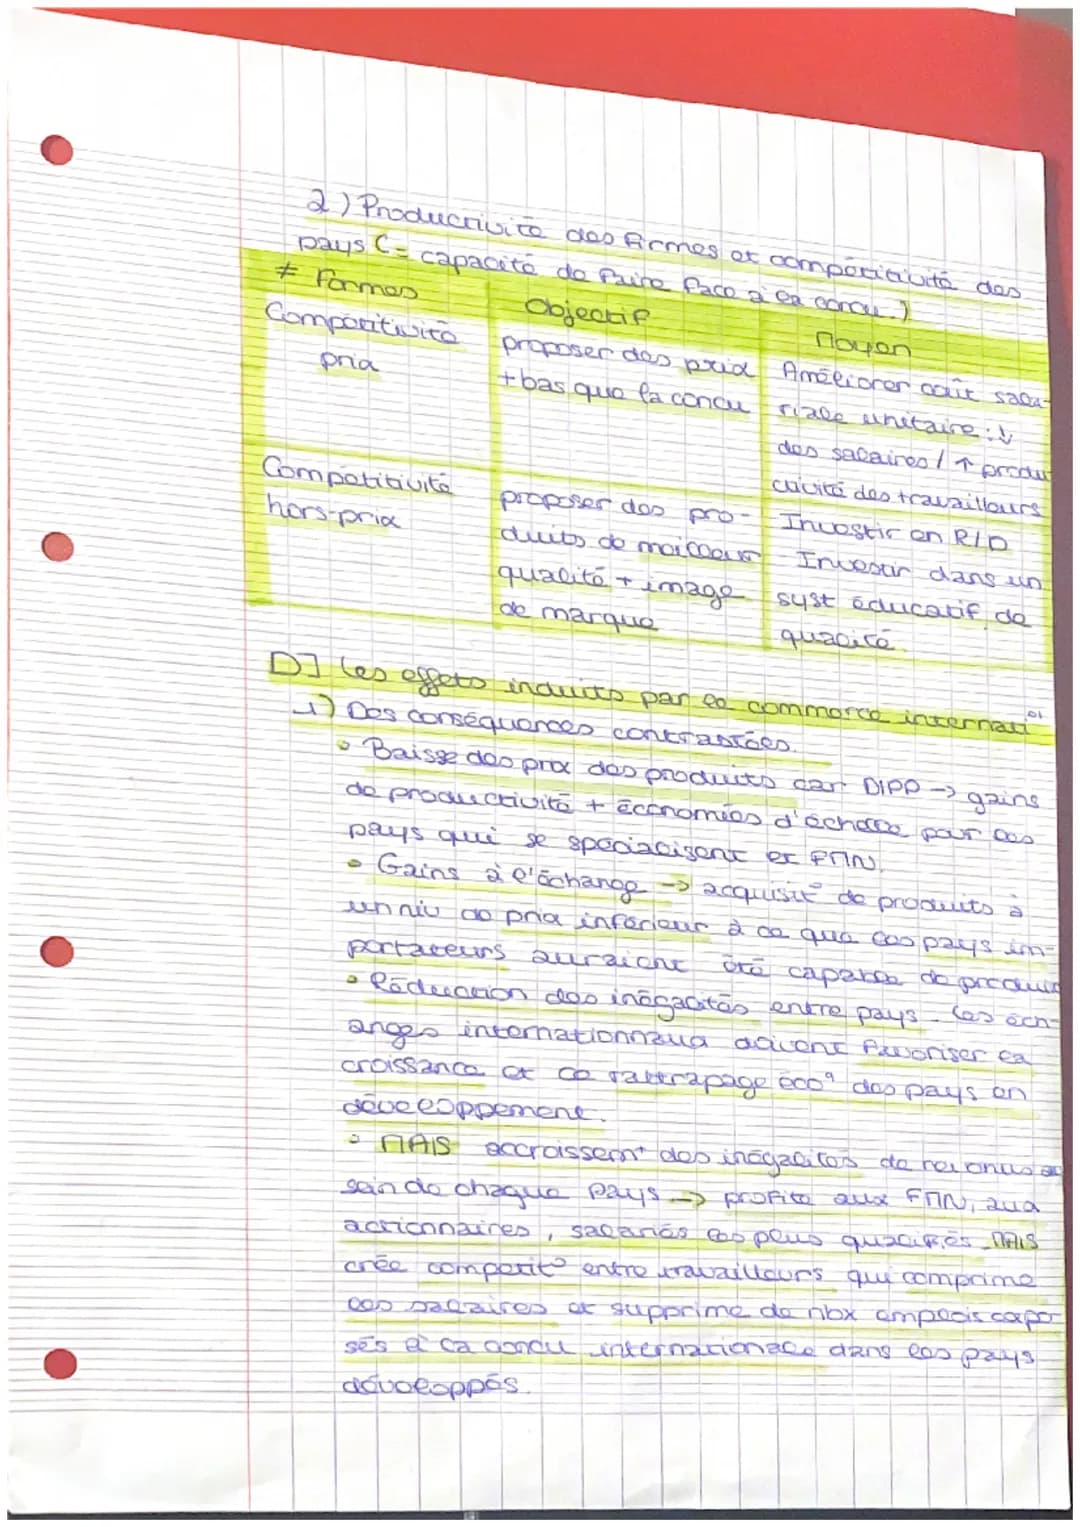 2) Productivité des firmes et compétitivité des
pays (= capacité de faire face à la concu.)
≠ Formes
Objectif
Moyen
Compétitivité
prix
proposer des prix
+ bas que la concu
Améliorer coût sala-
riale unitaire : ↓
des salaires / ↑ produ
ctivité des travailleurs
Compétitivité
hors-prix
proposer des pro-
duits de meilleur
qualité + image
de marque
- Investir en R/D
- Investir dans un
syst éducatif de
qualité.
D] Les effets induits par le commerce internati°ⁿ
1) Des conséquences contrastées.
• Baisse des prix des produits car DIPP → gains
de productivité + économies d'échelle pour les
pays qui se spécialisent et FMN.
• Gains à l'échange → acquisit° de produits à
un niv de prix inférieur à ce que les pays im-
portateurs auraient été capable de produir
• Réduction des inégalités entre pays. Les éch-
anges internationnaux doivent favoriser la
croissance et le rattrapage éco° des pays en
développement.
• MAIS accroissent des inégalités de revenus au
sein de chaque pays → profite aux FMN, aux
actionnaires, salariés les plus qualifiés. MAIS
crée compétit° entre travailleurs qui comprime
les salaires et supprime de nbx emplois expo-
sés à la concu internationale dans les pays
développés.